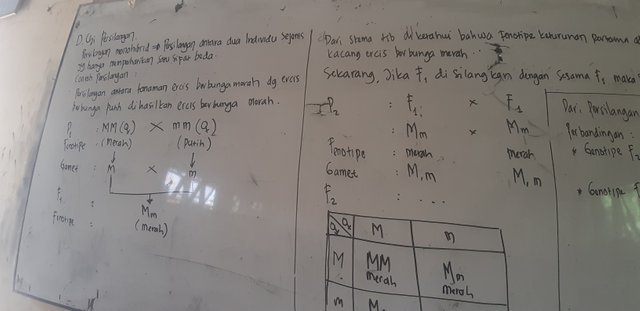 D. Uji Persilangan.
Persilangan monohibrid => Persilangan antara dua Individu Sejenis
yg hanya memperhatikan satu sifat beda.
Contoh persilangan :
Persilangan antara tanaman ercis berbunga merah dg ercis
berbunga putih di hasilkan ercis berbunga merah.
P1 : MM (♀) × mm (♂)
Fenotipe : (merah) (Putih)
Gamet : M × m
F1 : Mm
Fenotipe : (merah)
Dari skema tsb diketahui bahwa Fenotipe keturunan pertama
kacang ercis berbunga merah
Sekarang, Jika F1 di silangkan dengan sesama F1 maka
P2 : F1 × F1
: Mm × Mm
Fenotipe : merah merah
Gamet : M, m M, m
F2 : ...
M m
M MM Mm
merah merah
m
Dari Persilangan
Perbandingan
* Genotipe F2
* Genotipe